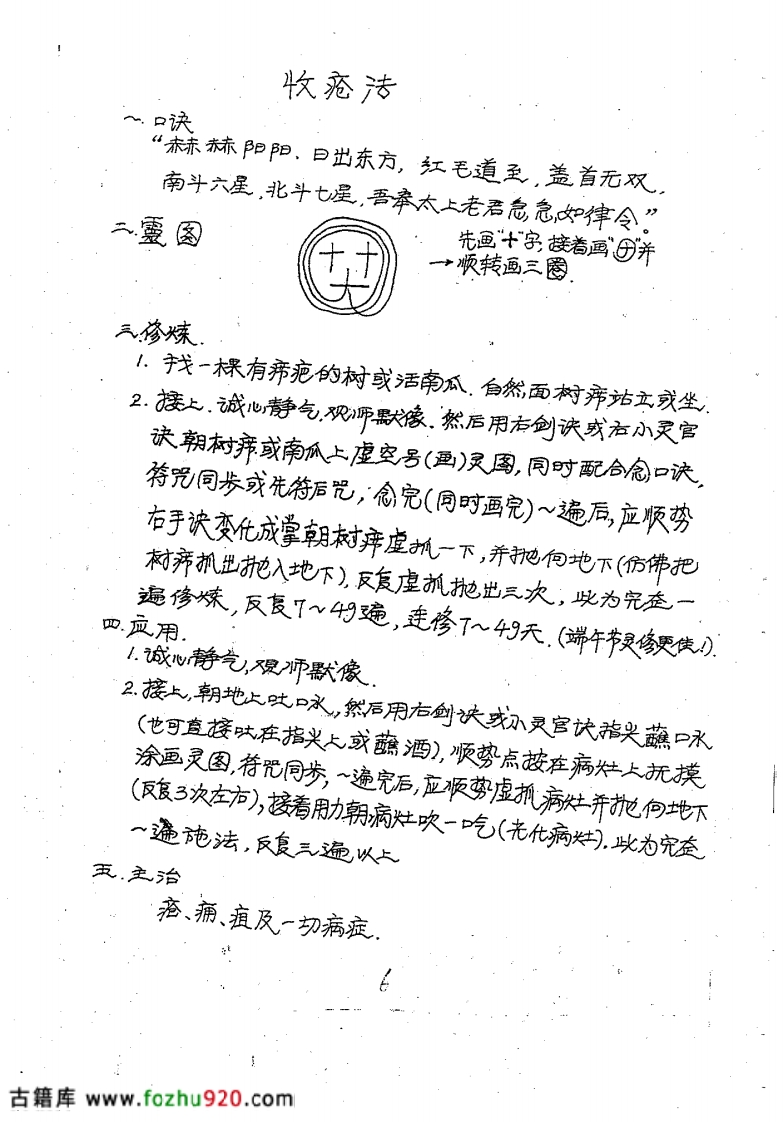 收疮法
一.口诀
“赫赫阳阳.日出东方,红毛道至,盖首无双,
南斗六星,北斗七星,吾奉太上老君急急如律令”。
二.靈图
先画“十”字,接着画“⊕”并
→顺转画三圈.
三.修炼.
1. 找一棵有疿疤的树或活南瓜.自然,面树疿站立或坐.
2. 接上.诚心静气,观师默像.然后用右剑诀或右小灵官
诀朝树疿或南瓜上虚空号(画)灵图,同时配合念口诀,
符咒同步或先符后咒,念完(同时画完)~遍后,应顺势
右手诀变化成掌朝树疿虚抓一下,并抛向地下(仿佛把
树疿抓出抛入地下),反复虚抓抛出三次,此为完整一
遍修炼,反复7~49遍,连修7~49天.(端午节灵修更佳!).
四.应用.
1.诚心静气,观师默像.
2.接上,朝地上吐口水,然后用右剑诀或小灵官诀指尖蘸口水
(也可直接吐在指尖上或蘸酒),顺势点按在病灶上抚摸
涂画灵图,符咒同步,~遍完后,应顺势虚抓病灶并抛向地下
(反复3次左右),接着用力朝病灶吹一吃(光化病灶).此为完整
~遍施法,反复三遍以上
五.主治
疮、痈、疽及一切病症.
6
古籍库 www.fozhu920.com